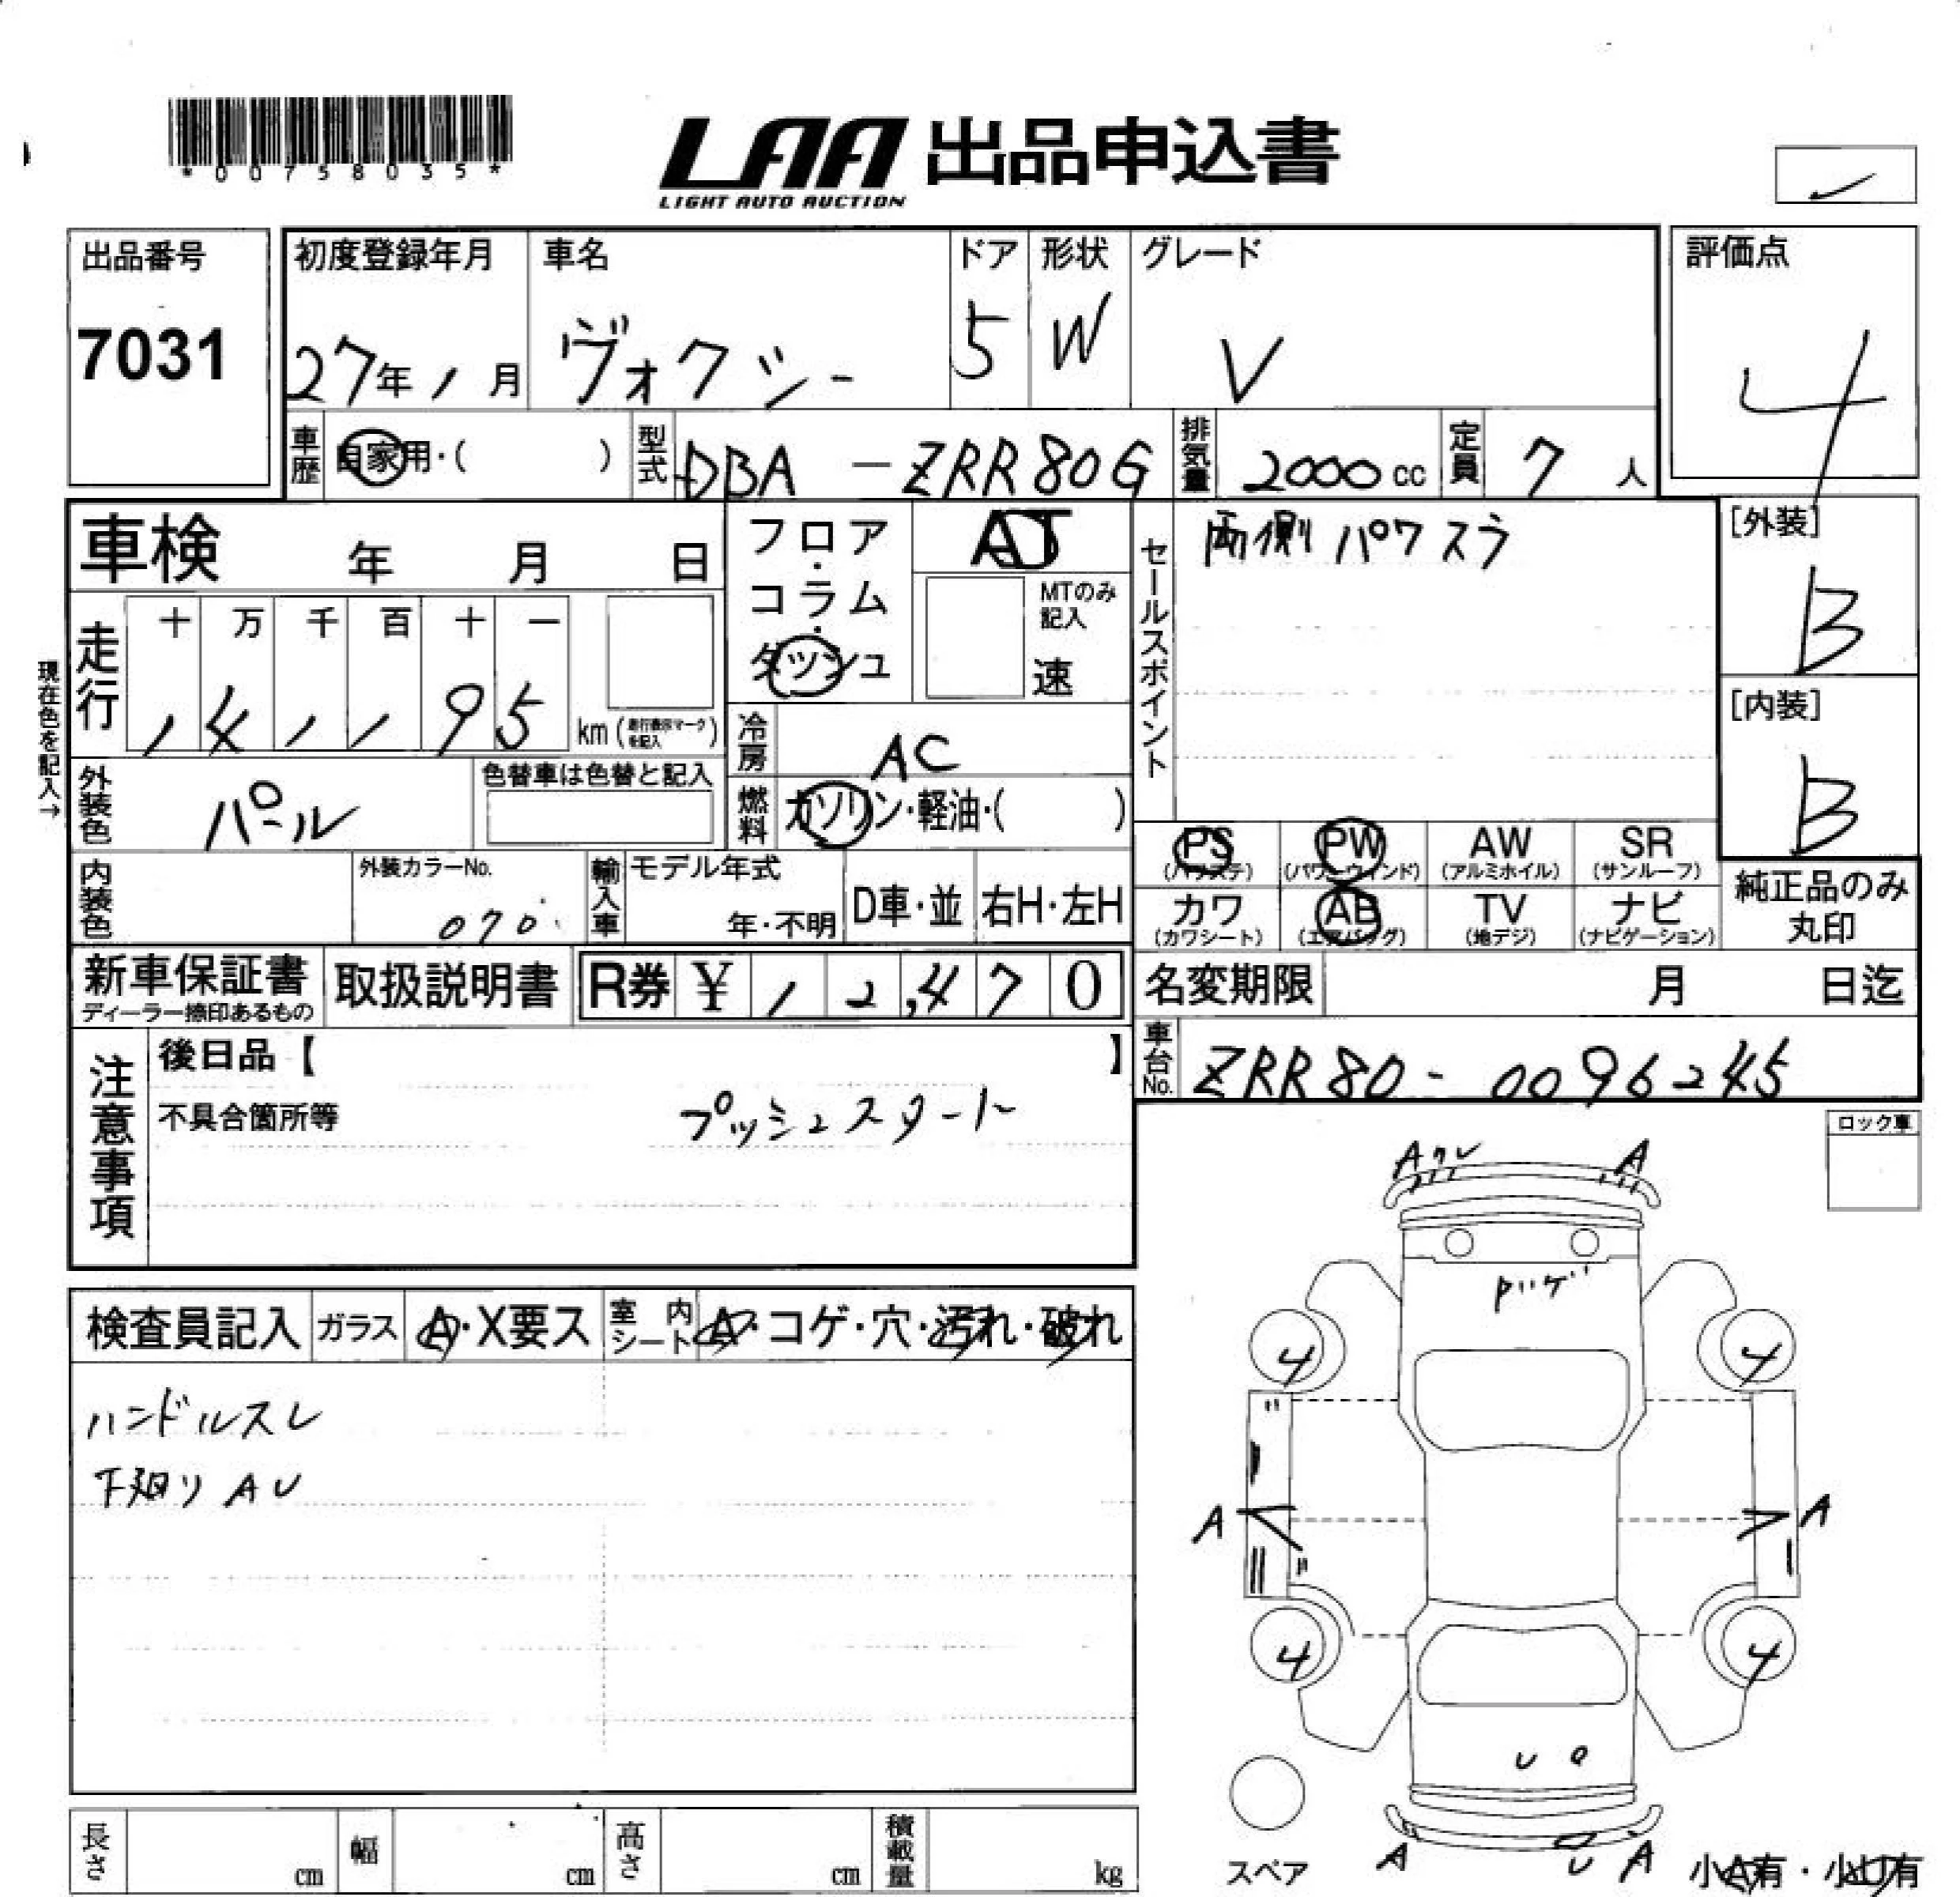 *00758035*
LAA 出品申込書
LIGHT AUTO AUCTION
出品番号
7031
初度登録年月
27年1月
車名
ヴォクシー
ドア
5
形状
W
グレード
V
評価点
4
車歴
自家用・( )
型式
DBA - ZRR80G
排気量
2000 cc
定員
7 人
車検 年 月 日
フロア・コラム・ダッシュ
AT
MTのみ記入
速
セールスポイント
両側パワスラ
[外装]
B
[内装]
B
現在色を記入→
走行
十 万 千 百 十 一
1 4 1 1 9 5 km (走行表示マークを記入)
冷房
AC
外装色
パール
色替車は色替と記入
燃料
ガソリン・軽油・( )
PS
(パワステ)
PW
(パワーウィンド)
AW
(アルミホイル)
SR
(サンルーフ)
カワ
(カワシート)
AB
(エアバッグ)
TV
(地デジ)
ナビ
(ナビゲーション)
純正品のみ
丸印
内装色
外装カラーNo.
070
輸入車
モデル年式
年・不明
D車・並
右H・左H
新車保証書
ディーラー捺印あるもの
取扱説明書
R券 ¥ 1 2,4 7 0
名変期限 月 日迄
車台No.
ZRR80-0096245
注意事項
後日品【 】
不具合箇所等
プッシュスタート
ロック車
A ワレ A
トバゲ
検査員記入
ガラス
A・X要ス
室内シート
A・コゲ・穴・汚れ・破れ
ハンドルスレ
下廻り A U
4 4
A A
4 4
U
A U A
スペア
小A有・小U有
長さ cm
幅 cm
高さ cm
積載量 kg